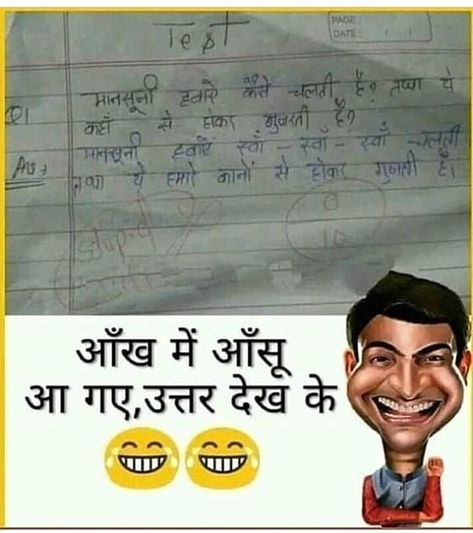 Test
PAGE:
DATE:
Q1 मानसूनी हवाऐं कैसे चलती है? तथा ये
कहाँ से होकर गुजरती है?
Ans मानसूनी हवाऐं स्वाँ - स्वाँ - स्वाँ चलती
तथा ये हमारे कानों से होकर गुजरती है।
Stupid
0
10
आँख में आँसू
आ गए,उत्तर देख के